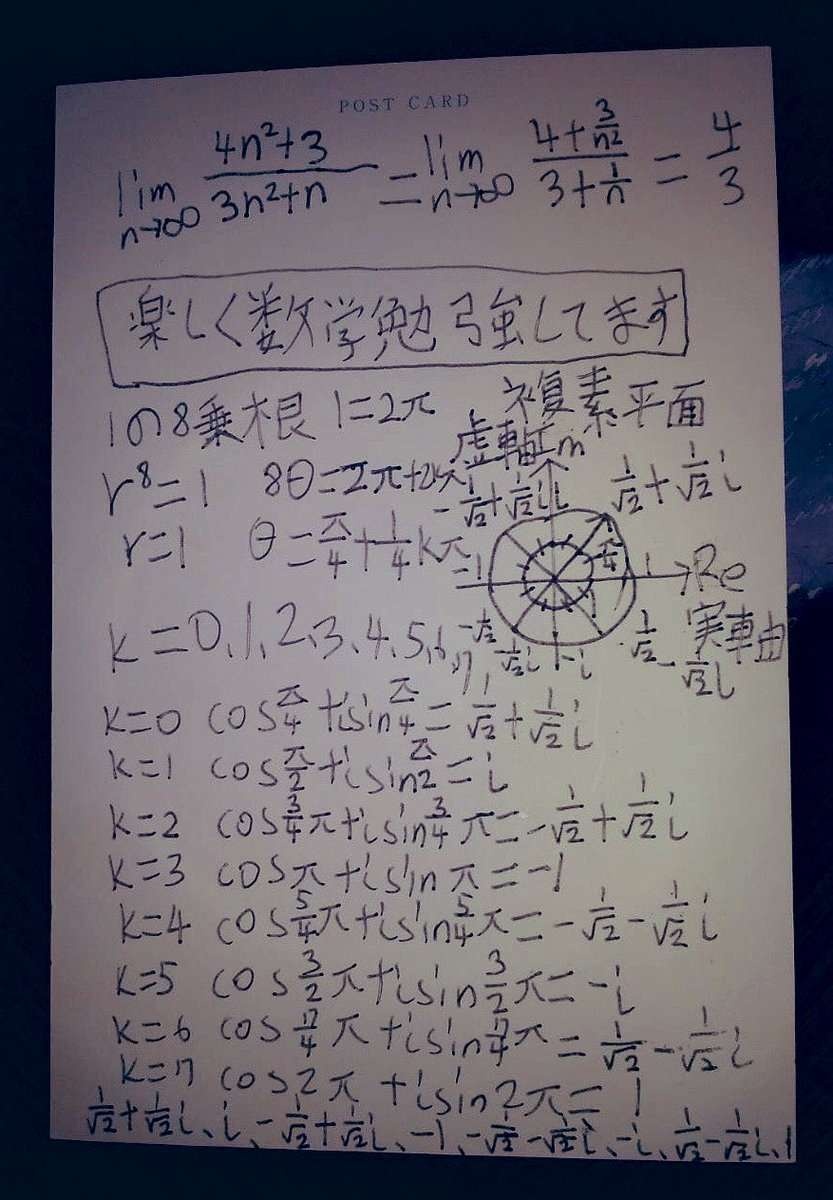 POST CARD
lim n→∞ (4n²+3)/(3n²+n) = lim n→∞ (4+3/n²)/(3+1/n) = 4/3
楽しく数学勉強してます
1の8乗根 1=2π 複素平面
虚軸Im
r⁸=1 8θ=2π+2kπ -1/√2+1/√2i i 1/√2+1/√2i
r=1 θ=π/4+1/4kπ -1 π/4 1 Re
実軸
k=0,1,2,3,4,5,6,7, -1/√2-1/√2i -i 1/√2-1/√2i
k=0 cosπ/4+isinπ/4=1/√2+1/√2i
k=1 cosπ/2+isinπ/2=i
k=2 cos3/4π+isin3/4π=-1/√2+1/√2i
k=3 cosπ+isinπ=-1
k=4 cos5/4π+isin5/4π=-1/√2-1/√2i
k=5 cos3/2π+isin3/2π=-i
k=6 cos7/4π+isin7/4π=1/√2-1/√2i
k=7 cos2π+isin2π=1
1/√2+1/√2i、i、-1/√2+1/√2i、-1、-1/√2-1/√2i、-i、1/√2-1/√2i、1